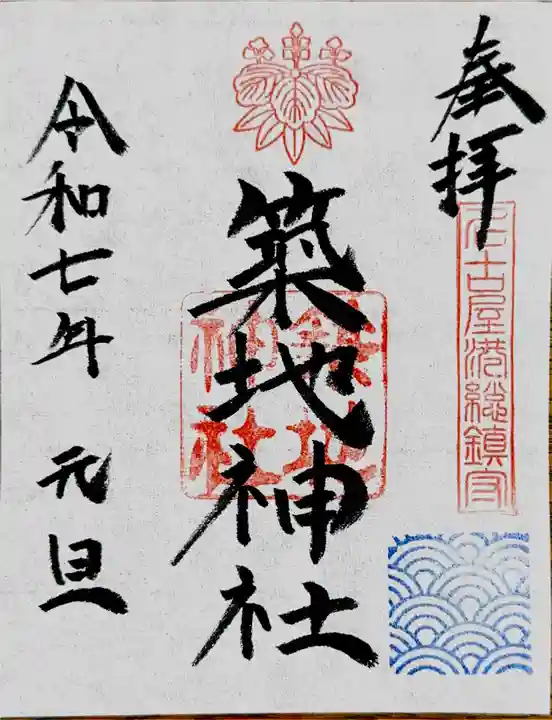 奉拝
名古屋港総鎮守
築地神社
築地
神社
令和七年 元旦